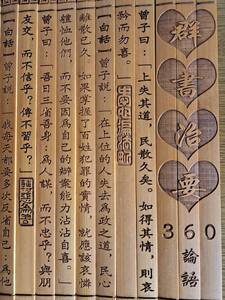 群書治要
360
論語
曾子曰:「上失其道,民散久矣。如得其情,則哀
矜而勿喜。」
【白話】曾子說:在上位的人失去為政之道,民心
離散已久。如果掌握了百姓犯罪的實情,就應該哀憐
體恤他們,而不要因為自己的辦案能力沾沾自喜。
曾子曰:「吾日三省吾身:為人謀,而不忠乎?與朋
友交,而不信乎?傳不習乎?」
【白話】曾子說:我每天都要多次反省自己:為他